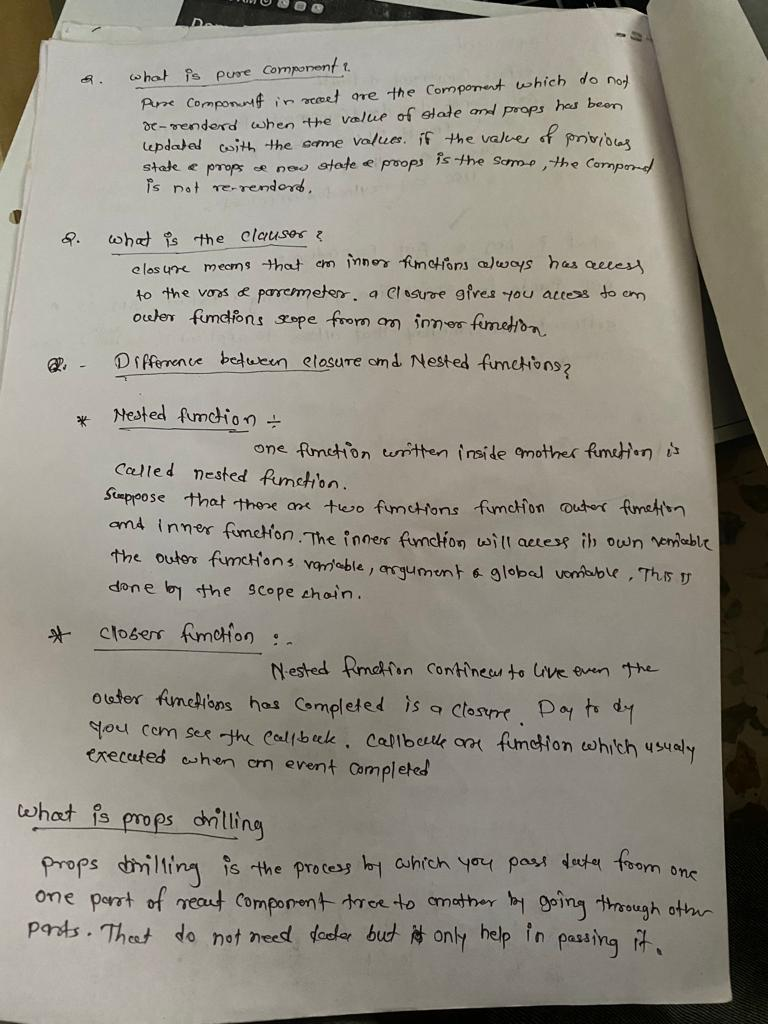 Q. what is pure component?
Pure Component in react are the Component which do not
re-renderd when the value of state and props has been
updated with the same values. if the values of privious
state & props & new state & props is the same, the Compond
is not re-renderd.
Q. what is the clauser?
closure means that an inner functions always has access
to the vars & parameter. a closure gives you access to an
outer functions scope from an inner function.
Q. - Difference between closure and Nested functions?
* Nested function ÷
one function written inside another function is
Called nested function.
Suppose that there are two functions function outer function
and inner function. The inner function will access its own variable
the outer functions variable, argument & global variable, This is
done by the scope chain.
* Closer function :-
Nested function continew to live even the
outer functions has completed is a closure. Day to dy
you can see the callback. Callback are function which usualy
executed when an event completed
what is props drilling
props drilling is the process by which you pass data from one
one part of react component tree to another by going through other
parts. That do not need data but only help in passing it.